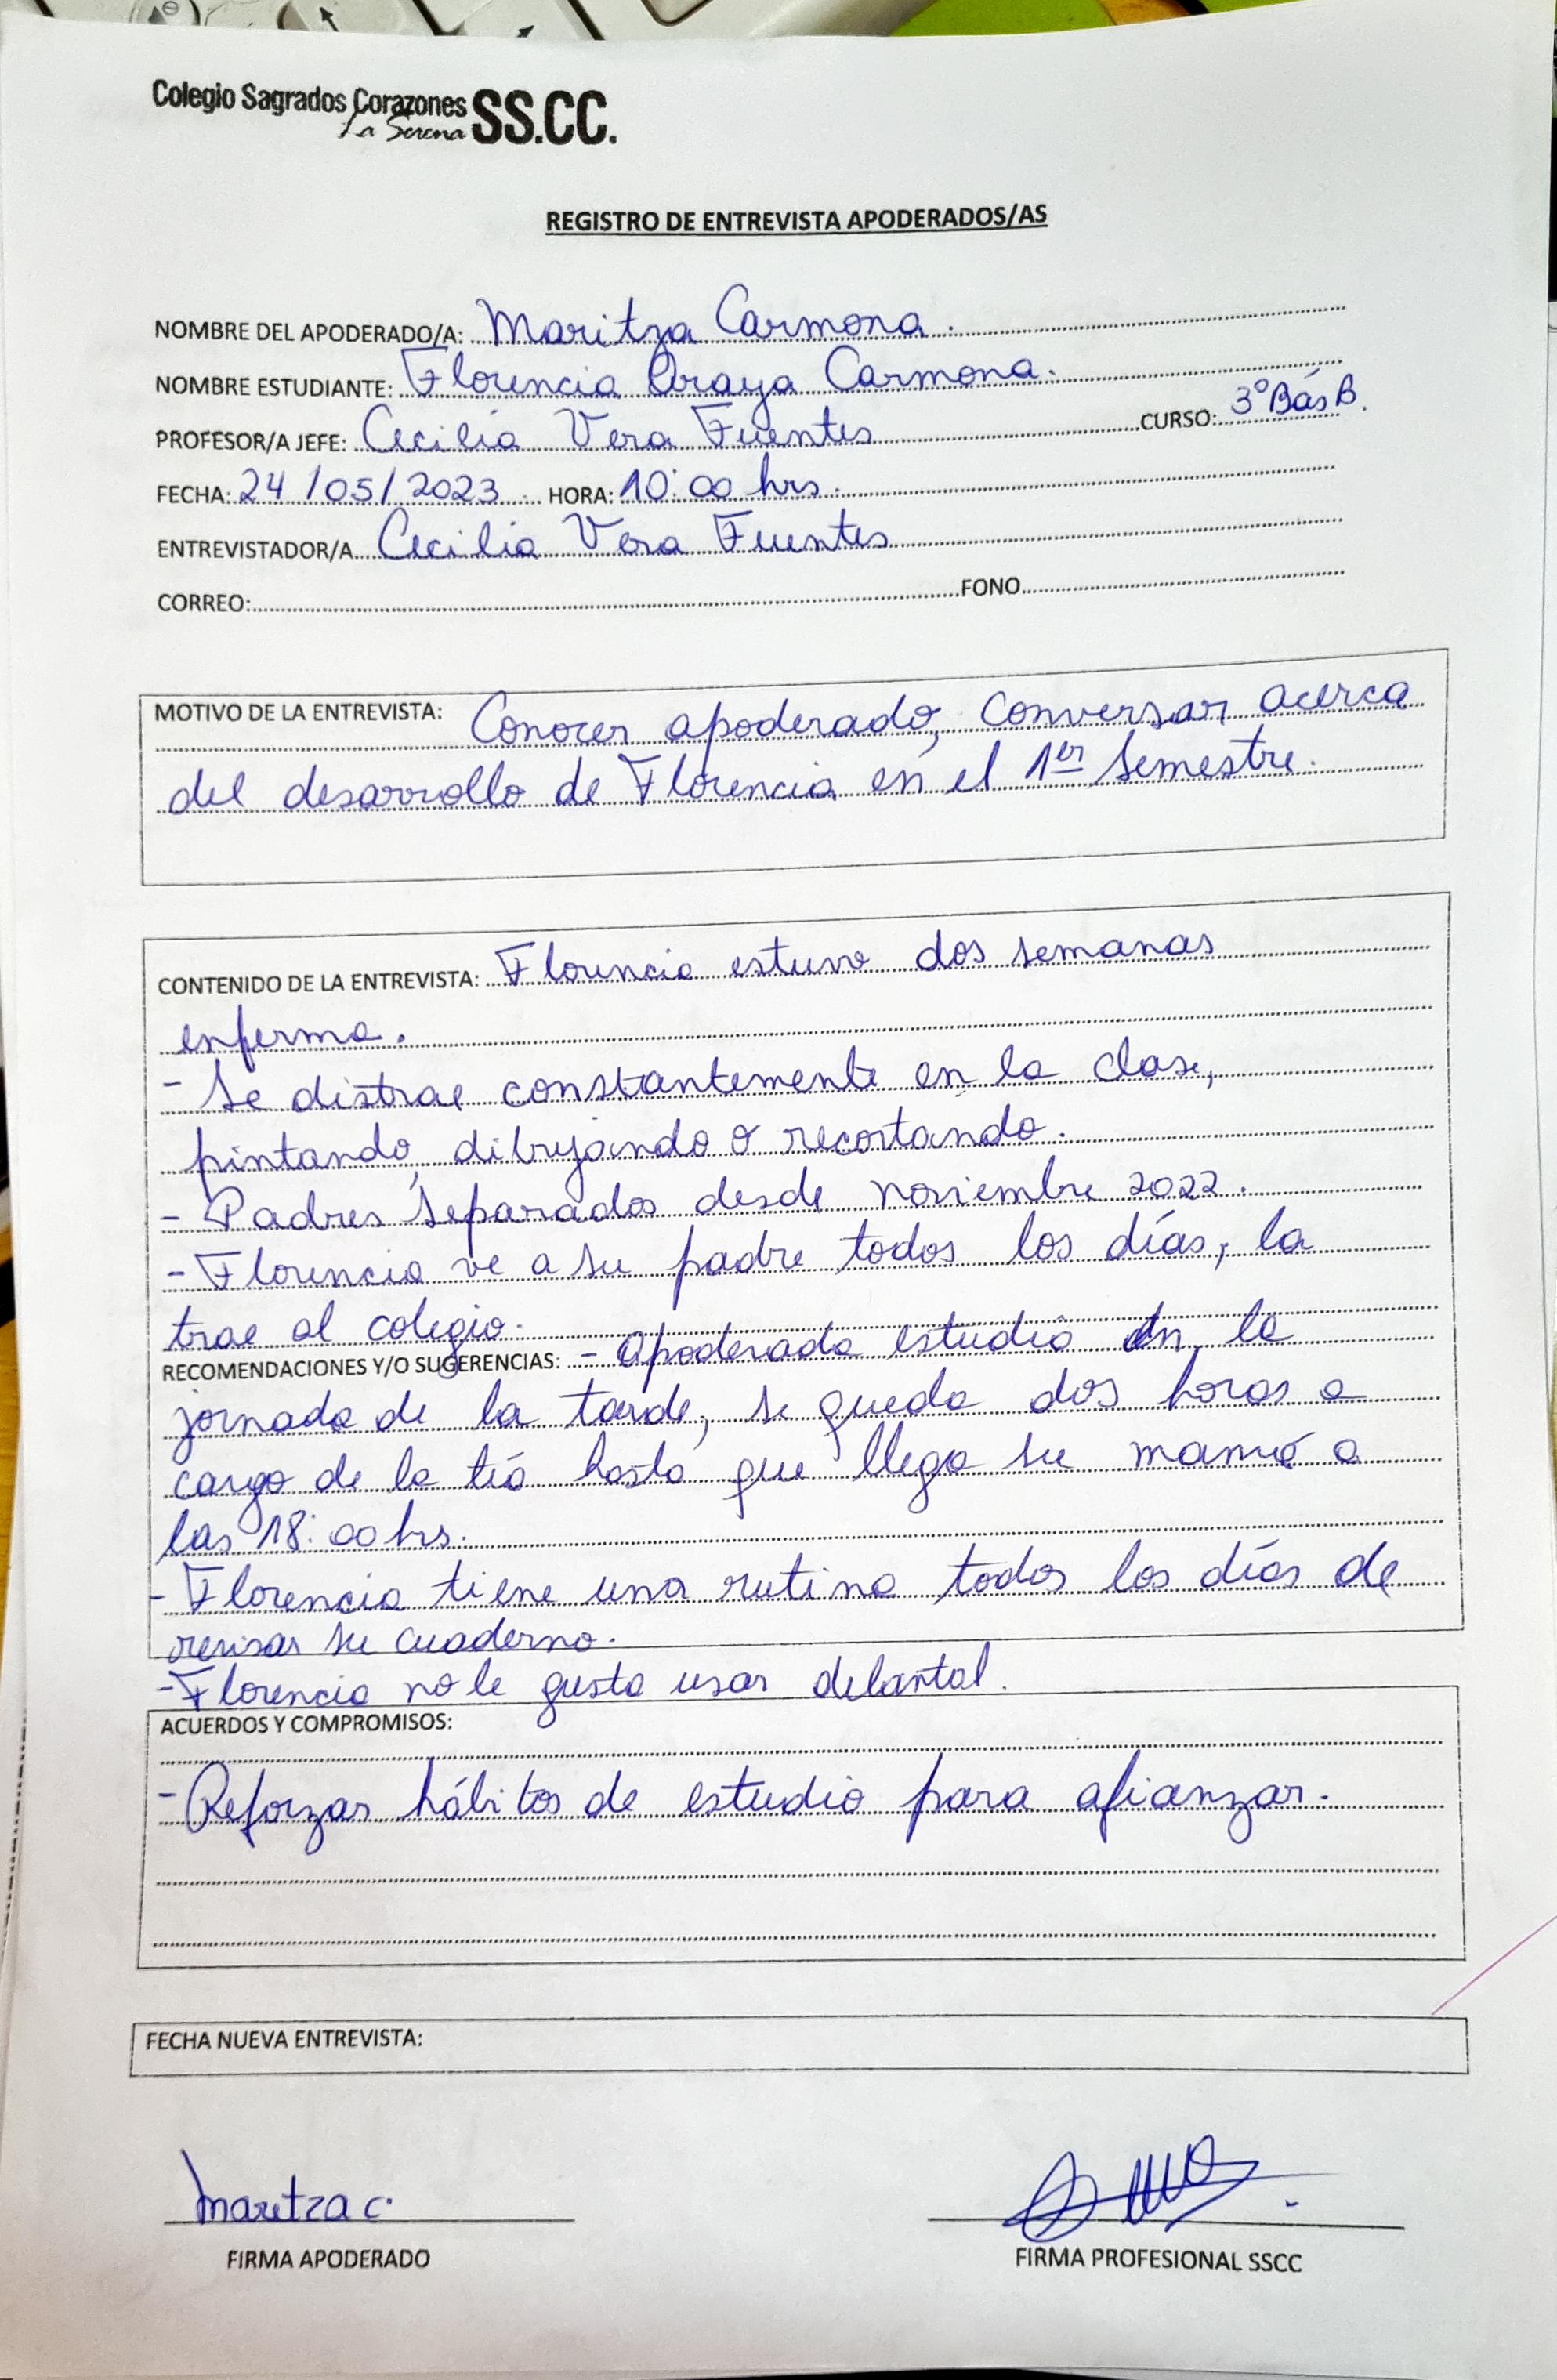 Colegio Sagrados Corazones SS.CC.
La Serena
REGISTRO DE ENTREVISTA APODERADOS/AS
NOMBRE DEL APODERADO/A: Maritza Carmona.
NOMBRE ESTUDIANTE: Florencia Araya Carmona.
PROFESOR/A JEFE: Cecilia Vera Fuentes CURSO: 3° Bás B.
FECHA: 24/05/2023 HORA: 10:00 hrs.
ENTREVISTADOR/A Cecilia Vera Fuentes
CORREO: FONO
MOTIVO DE LA ENTREVISTA: Conocer apoderado, conversar acerca
del desarrollo de Florencia en el 1er semestre.
CONTENIDO DE LA ENTREVISTA: Florencia estuvo dos semanas
enferma.
- Se distrae constantemente en la clase,
pintando, dibujando o recortando.
- Padres separados desde noviembre 2022.
- Florencia ve a su padre todos los días, la
trae al colegio.
RECOMENDACIONES Y/O SUGERENCIAS: - Apoderada estudia en la
jornada de la tarde, se queda dos horas a
cargo de la tía hasta que llega su mamá a
las 18:00 hrs.
- Florencia tiene una rutina todos los días de
revisar su cuaderno.
- Florencia no le gusta usar delantal.
ACUERDOS Y COMPROMISOS:
- Reforzar hábitos de estudio para afianzar.
FECHA NUEVA ENTREVISTA:
Maritza C.
FIRMA APODERADO FIRMA PROFESIONAL SSCC